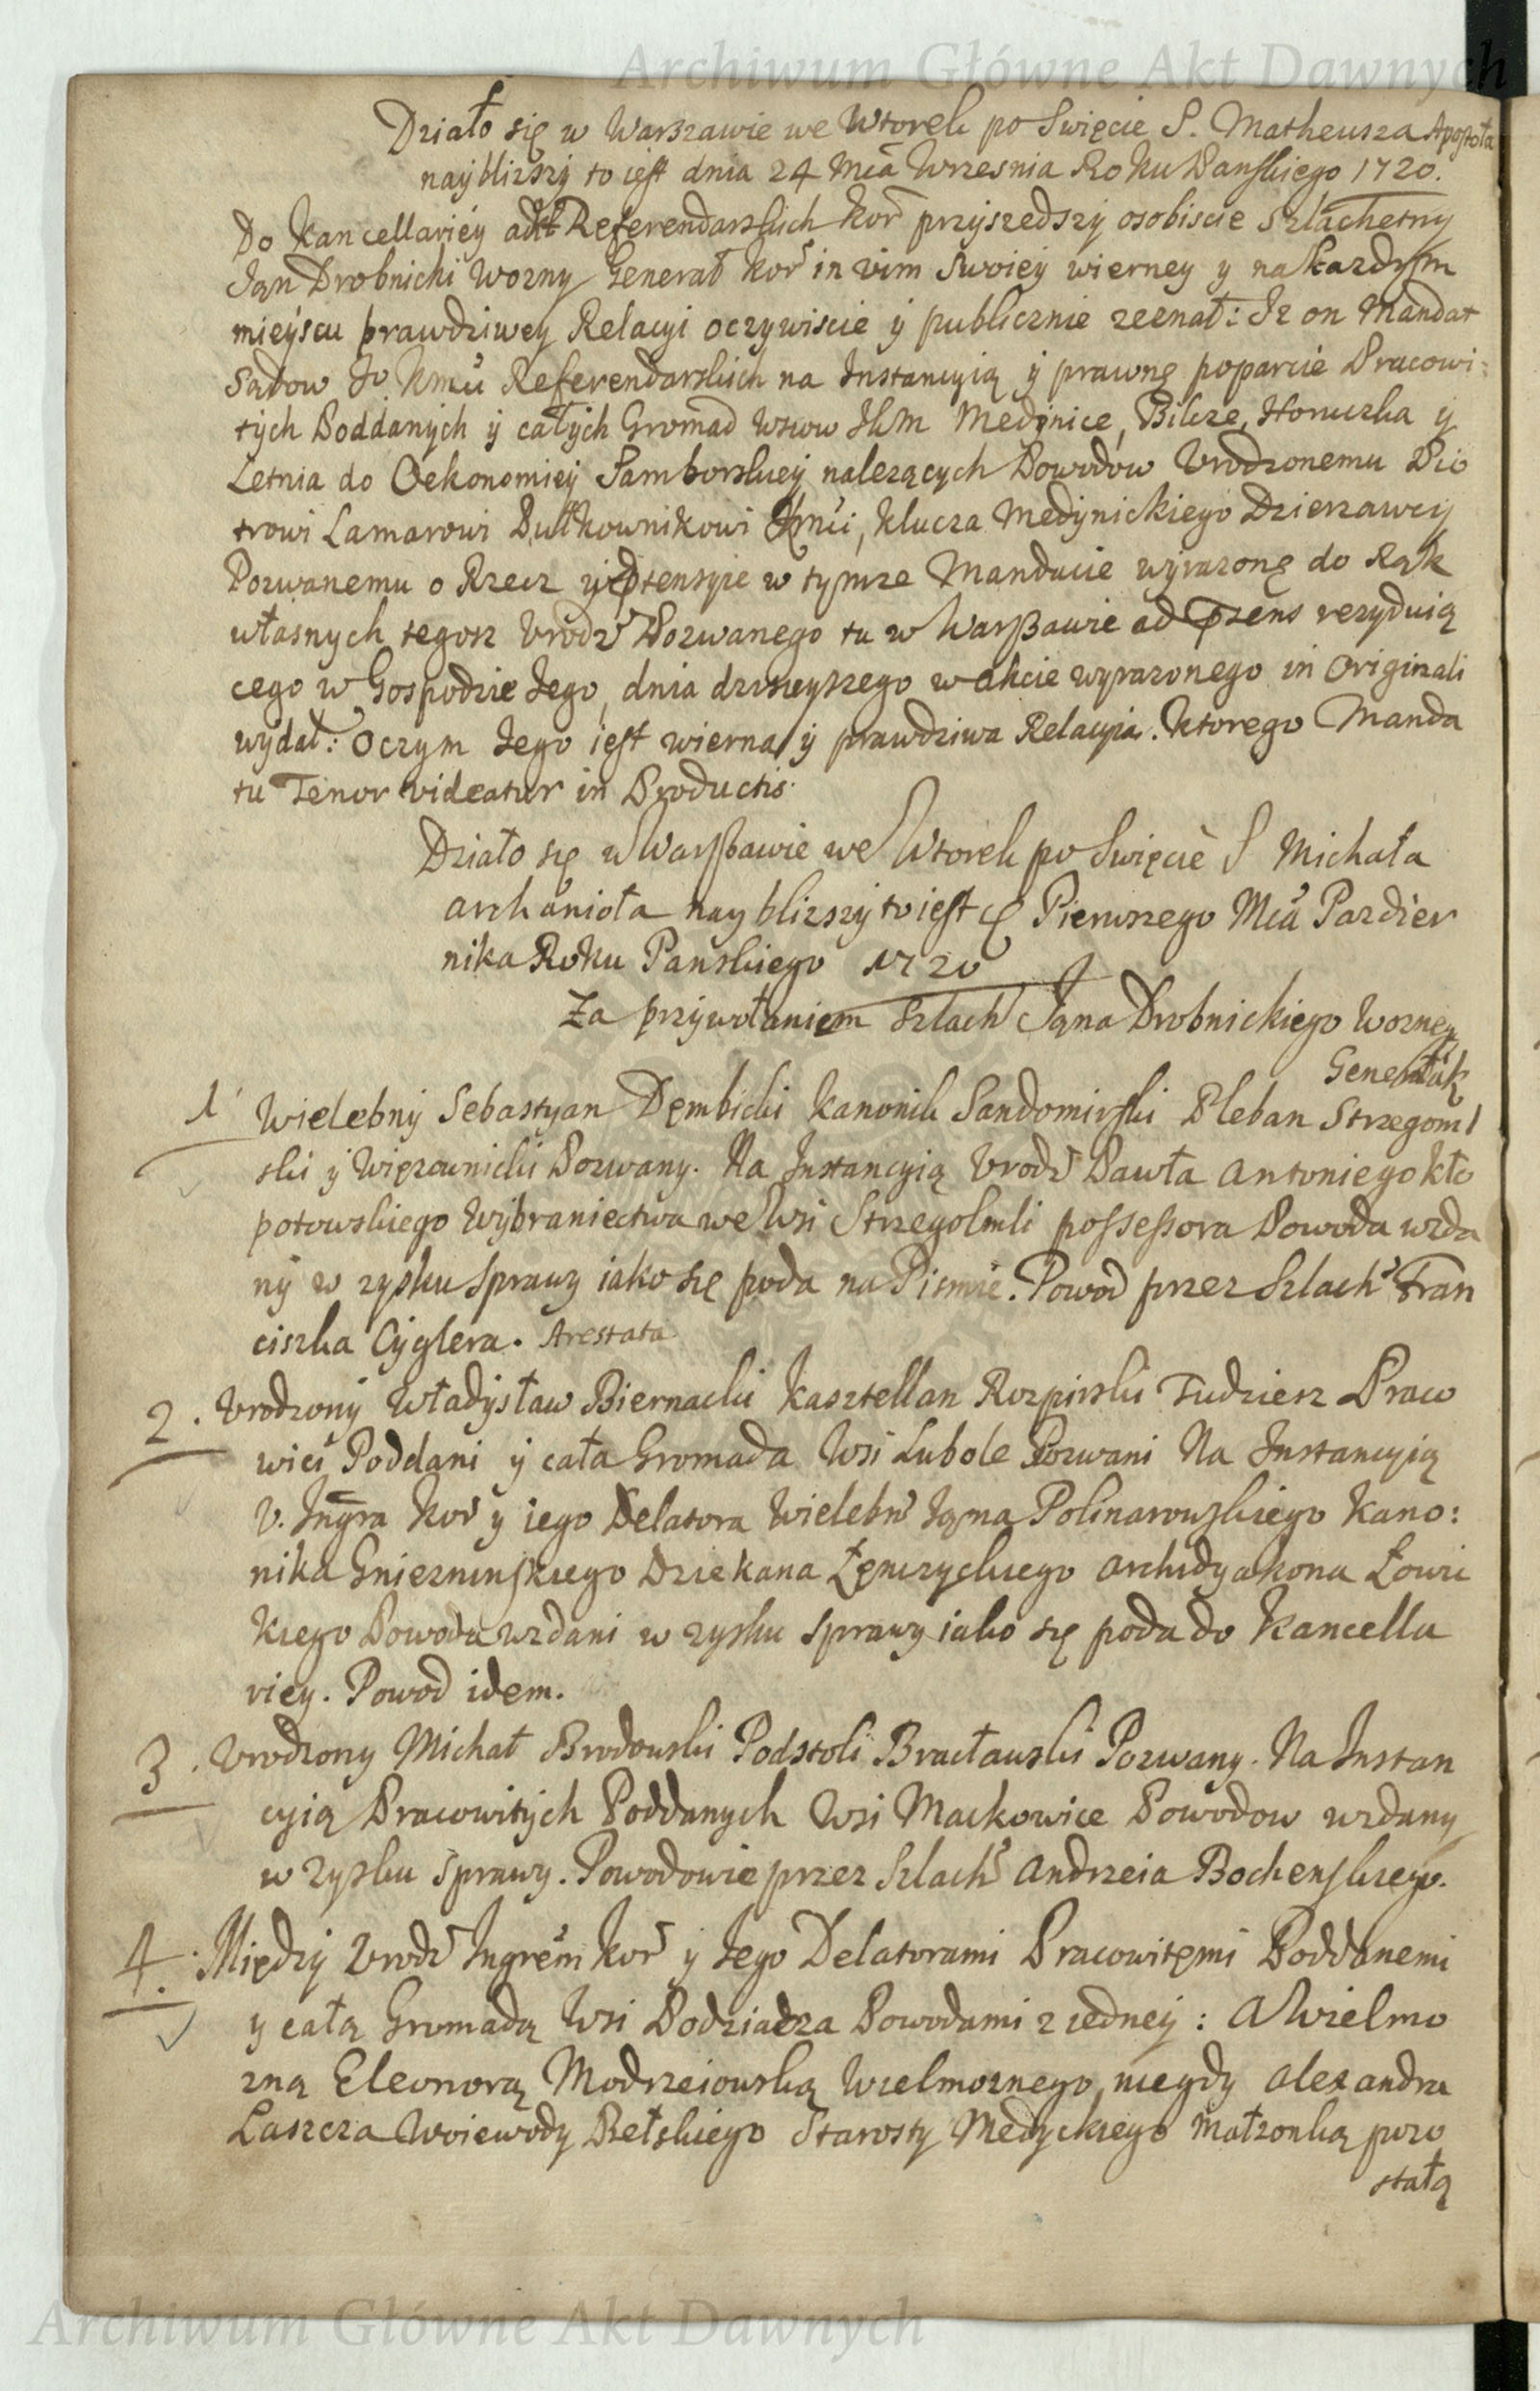 Archiwum Główne Akt Dawnych
Działo się w Warszawie we Wtorek po Swięcie S. Matheusza Apostoła
nayblizszy to iest dnia 24 Mcá Wrzesnia Roku Panskiego 1720.
Do Kancellariey Referendarskich Kor przyszedszy osobiscie Szlachetny
Jąn Drobnicki Wozny Generał Kor in vim Swoiey wierney y na kazdym
mieyscu prawdziwey Relacyi oczywiscie y publicznie zeznał: Iz on Mandat
Sądow Jo Kmci Referendarskich na Instancyią y prawnę poparcie Pracowi:
tych Poddanych y całych Gromad Wsiow JKM Medynice, Bilcze, Horuczka y
Letnia do Oekonomiey Samborskiey nalezących Powodow Vrodzonemu Pio
trowi Lamarowi Pułkownikowi JKmci, Klucza Medynickiego Dzierzawcy
Pozwanemu o Rzecz y ptensyie w tymze Mandacie wyrazonę do Rąk
własnych tegosz Vrodz Pozwanego tu w Warszawie ad pzens rezyduią
cego w Gospodzie Jego, dnia dzisieyszego w akcie wyrazonego in Originali
wydał: Oczym Jego iest wierna y prawdziwa Relacyia. Ktorego Manda
tu Tenor videatur in Productis.
Działo się w Warszawie we Wtorek po Swięcie S Michała
Archanioła nayblizszy to iest Pierwszego Mcá Pazdzier
nika Roku Panskiego 1720
Za przywołaniem Szlach Jąna Drobnickiego Wozneg
Generał
1 Wielebny Sebastyan Dębicki Kanonik Sandomirski Pleban Strzegom
ski y Więzownicki Pozwany. Na Instancyią Vrodz Pawła Antoniego Kło
potowskiego Wybraniectwa we Wsi Strzegolmli possessora Powoda wzda
ny w zysku sprawy iako się poda na Pismie. Powod przez Szlach Fran
ciszka Cyglera. Arestata
2. Vrodzony Władysław Biernacki Kasztellan Rozpirski Tudziesz Praco
wici Poddani y cała Gromada Wsi Lubole Pozwani Na Instancyią
V. Ingra Kor y iego Delatora Wielebn Jąna Polinarowskiego Kano:
nika Gniezninskiego Dziekana Łęmczyckiego Archidyakona Łowic
kiego Powoda wzdani w zysku sprawy iako się poda do Kancella
riey. Powod idem.
3. Vrodzony Michał Brodowski Podstoli Bracławski Pozwany. Na Instan
cyią Pracowitych Poddanych Wsi Mackowice Powodow wzdany
w zysku sprawy. Powodowie przez Szlach Andrzeia Bochenskiego.
4. Między Vrodz Ingrem Kor y Jego Delatorami Pracowitemi Poddanemi
y całą Gromadą Wsi Podziadza Powodami z iedney: A Wielmo
zną Eleonorą Modrzeiowską Wielmoznego niegdy Alexandra
Laszcza Woiewody Bełskiego Starosty Medyckiego Małzonką pozo
stałą
Archiwum Główne Akt Dawnych